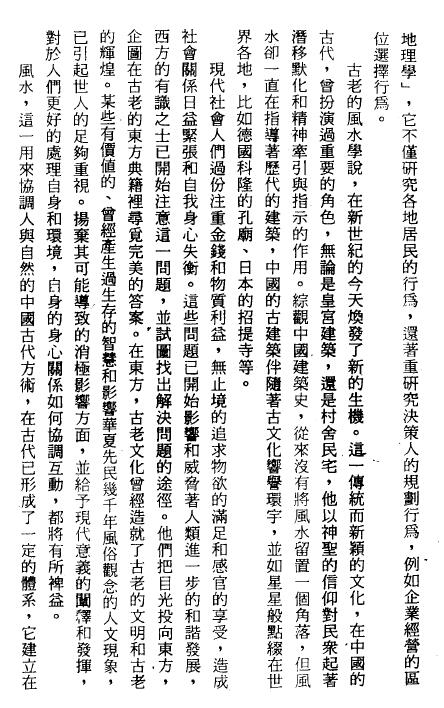 地理學」，它不僅研究各地居民的行爲，還著重研究決策人的規劃行爲，例如企業經營的區
位選擇行爲。
古老的風水學說，在新世紀的今天煥發了新的生機。這一傳統而新穎的文化，在中國的
古代，曾扮演過重要的角色，無論是皇宮建築，還是村舍民宅，他以神聖的信仰對民衆起著
潛移默化和精神牽引與指示的作用。綜觀中國建築史，從來沒有將風水留置一個角落，但風
水卻一直在指導著歷代的建築，中國的古建築伴隨著古文化響譽環宇，並如星星般點綴在世
界各地，比如德國科隆的孔廟、日本的招提寺等。
現代社會人們過份注重金錢和物質利益，無止境的追求物欲的滿足和感官的享受，造成
社會關係日益緊張和自我身心失衡。這些問題已開始影響和威脅著人類進一步的和諧發展，
西方的有識之士已開始注意這一問題，並試圖找出解決問題的途徑。他們把目光投向東方，
企圖在古老的東方典籍裡尋覓完美的答案。在東方，古老文化曾經造就了古老的文明和古老
的輝煌。某些有價值的、曾經產生過生存的智慧和影響華夏先民幾千年風俗觀念的人文現象，
已引起世人的足夠重視。揚棄其可能導致的消極影響方面，並給予現代意義的闡釋和發揮，
對於人們更好的處理自身和環境，自身的身心關係如何協調互動，都將有所裨益。
風水，這一用來協調人與自然的中國古代方術，在古代已形成了一定的體系，它建立在